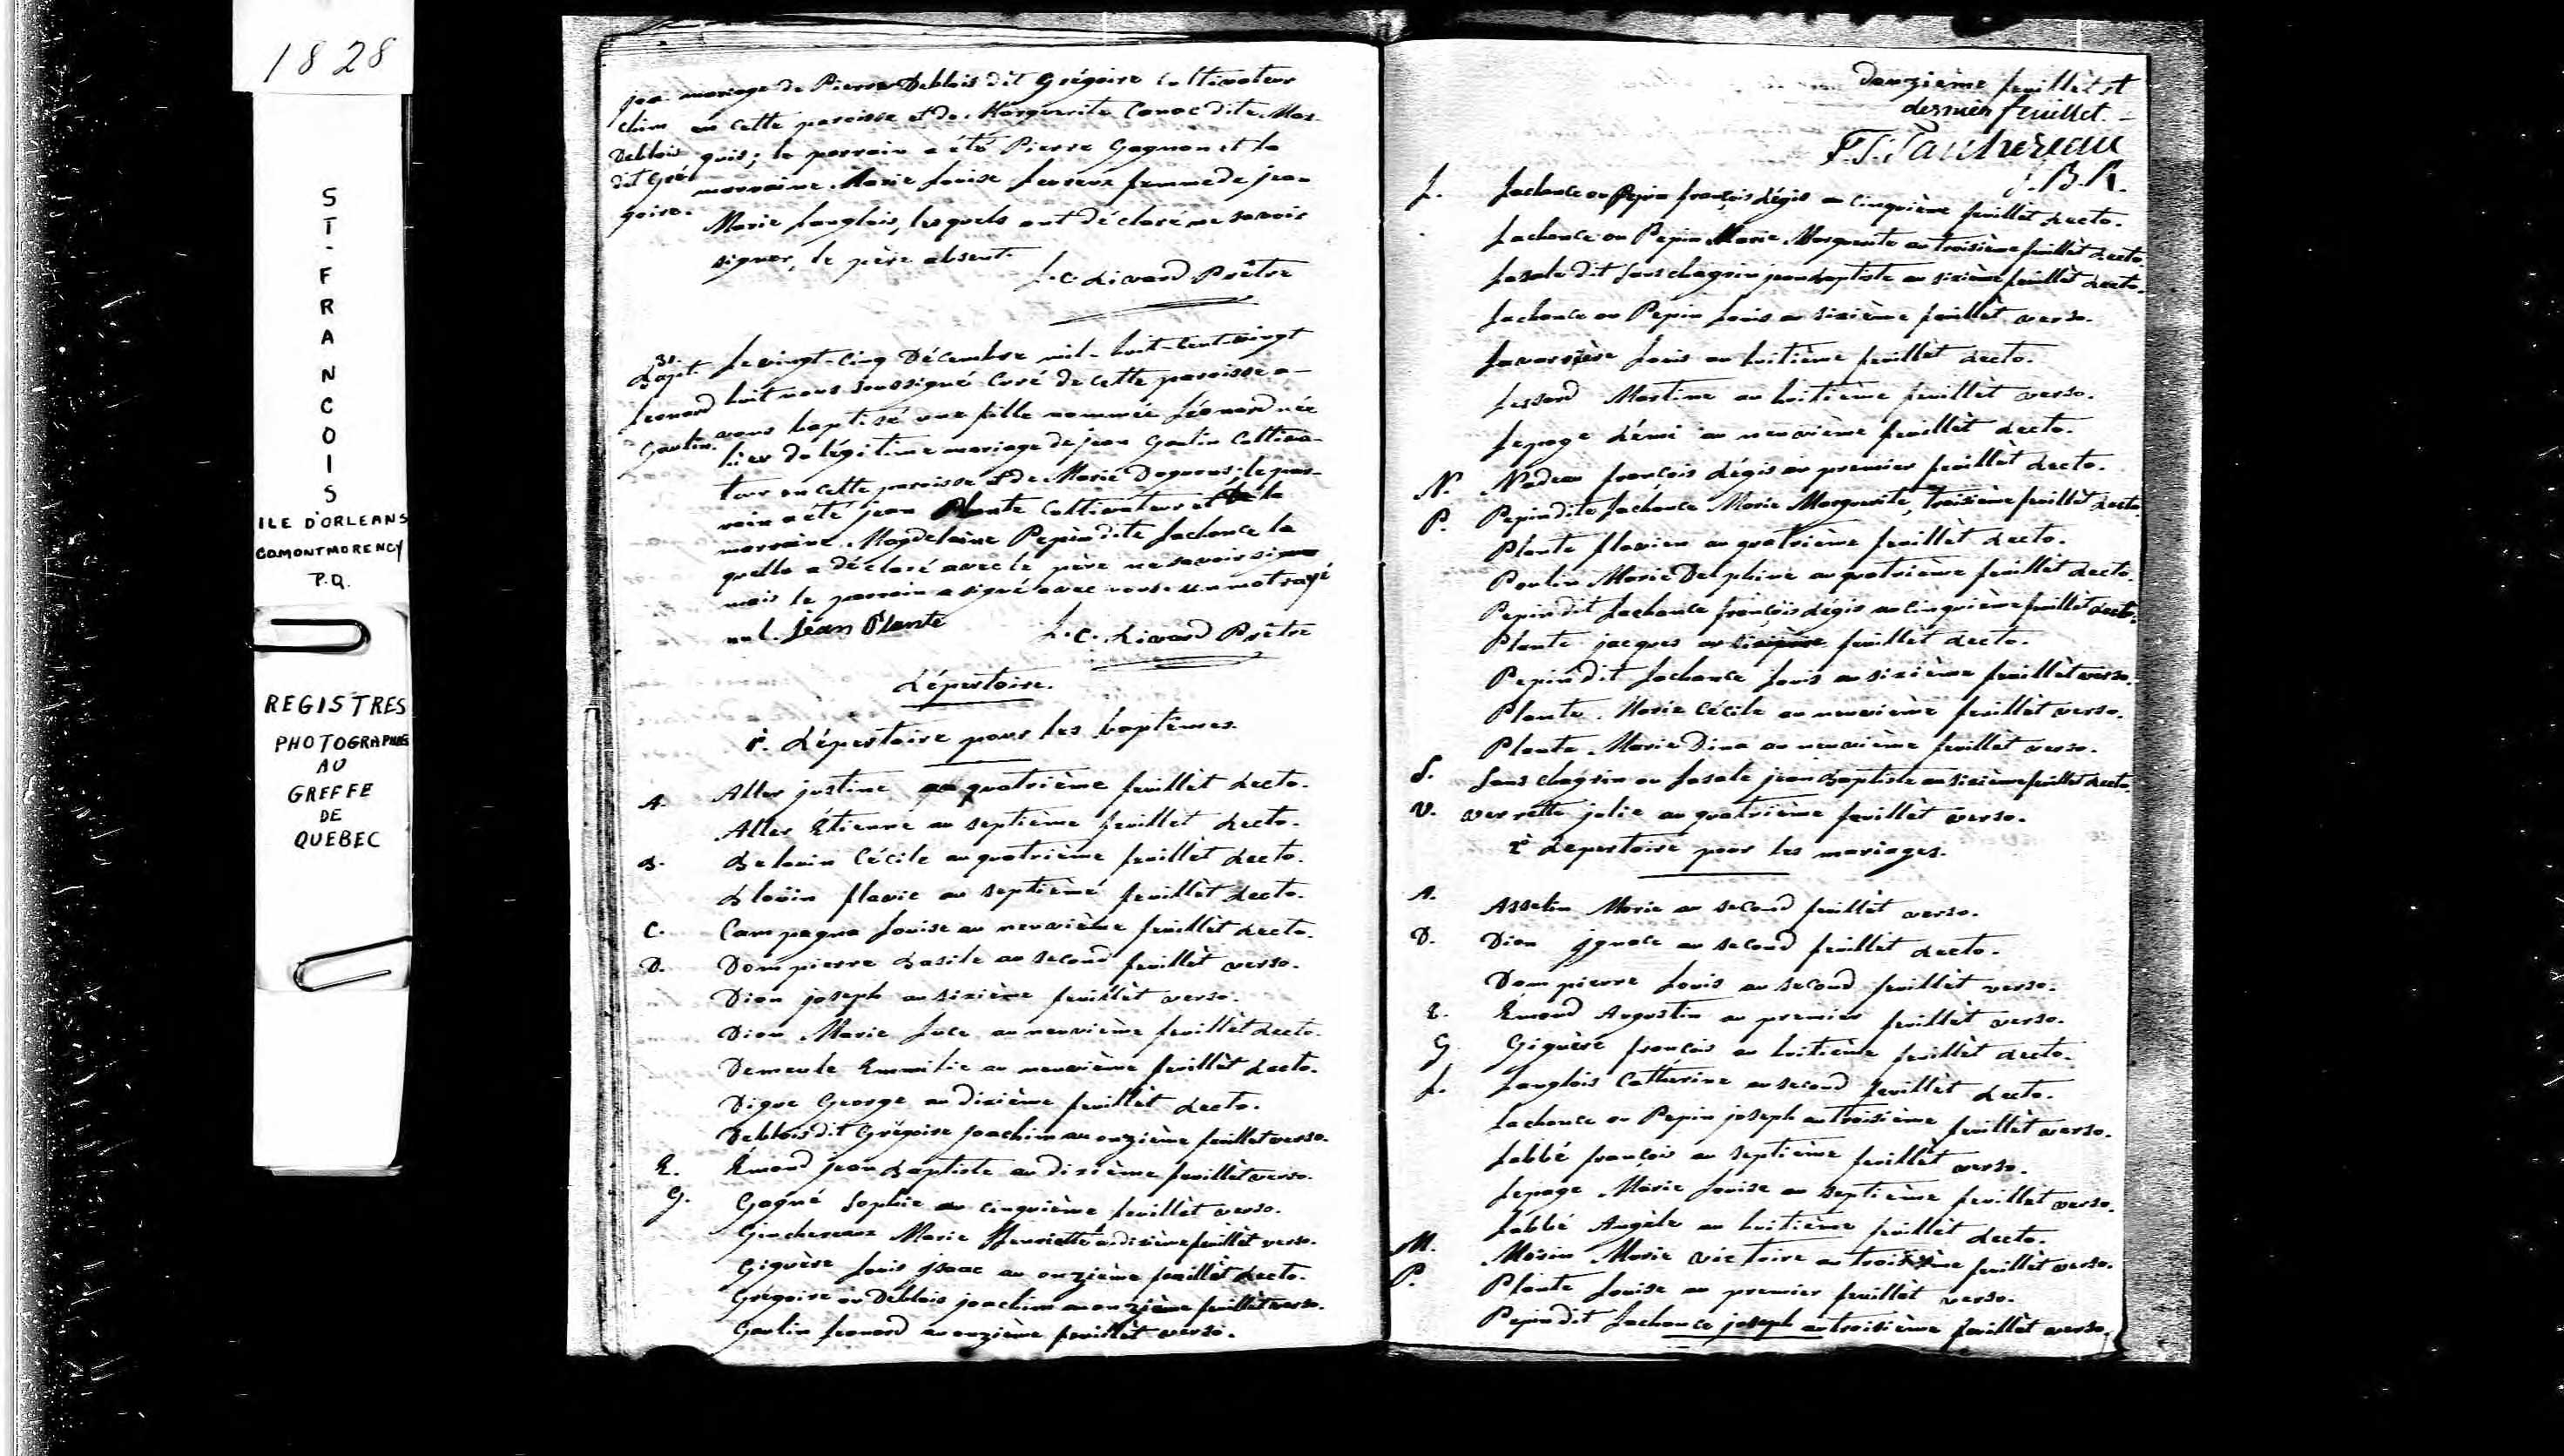 1828
ST-FRANCOIS
ILE D'ORLEANS
COMONTMORENCY
P.Q.
REGISTRES
PHOTOGRAPHIES
AU
GREFFE
DE
QUEBEC
joa- mariage de Pierre Deblois dit Grégoire Cultivateur
chim en cette paroisse et de Marguerite Canac dite Mar-
Deblois quis; le parrain a été Pierre Gagnon et la
dit Gré- marraine Marie Louise Leureux femme de jean
goire. Marie Langlois, lesquels ont déclaré ne savoir
signer, le père absent.
L. C. Livard Prêtre
Bapt. Le vingt-cinq Décembre mil-huit-cent-vingt
Leonard huit nous soussigné Curé de cette paroisse a-
Gaulin. vons baptisé une fille nommée Léonard née
hier du légitime mariage de jean Gaulin Cultiva-
teur en cette paroisse et de Marie ; le par-
rain a été jean Plante Cultivateur et la
marraine Magdelaine Pepin dite Lachance la
quelle a déclaré avec le père ne savoir signer
mais le parrain a signé avec nous. un mot rayé
nul. Jean Plante L. C. Livard Prêtre
Répertoire.
1°. Répertoire pour les baptêmes.
A. Aller justine au quatrième feuillèt Recto.
Aller Étienne au septième feuillet Recto.
B. Belouin Cécile au quatrième feuillèt Recto.
Blouin flavie au septième feuillèt Recto.
C. Campagna Louise au neuvième feuillèt Recto.
D. Dompierre Basile au second feuillèt verso.
Dion joseph au sixième feuillèt verso.
Dion Marie Luce au neuvième feuillèt Recto.
Demeule Emmilie au neuvième feuillèt Recto.
Digue George au dixième feuillèt Recto.
Deblois dit Grégoire joachim au onzième feuillet verso.
E. Émond jean Baptiste au dixième feuillèt verso.
G. Gagné Sophie au cinquième feuillèt verso.
Marie Henriette au dixième feuillèt verso.
Giguère Louis jsaac au onzième feuillèt Recto.
Grégoire ou Deblois joachim au onzième feuillèt verso.
Gaulin Leonard au onzième feuillèt verso.
Douzième feuillèt et
dernier feuillet. -
J. B. R.
L. Lachance ou Pepin françois Régis au cinquième feuillèt Recto.
Lachance ou Pepin Marie Marguerite au troisième feuillèt Recto.
Lasale dit Sans chagrin jean Baptiste au sixième feuillèt Recto.
Lachance ou Pepin Louis au sixième feuillèt verso.
Louis au huitième feuillèt Recto.
Lessard Martine au huitième feuillèt verso.
Lepage Rémi au neuvième feuillèt Recto.
N. Nadeau françois Régis au premier feuillèt Recto.
P. Pepin dite Lachance Marie Marguerite, troisième feuillèt Recto.
Plante flavien au quatrième feuillèt Recto.
Poulin Marie Delphine au quatrième feuillèt Recto.
Pepin dit Lachance françois Régis au cinquième feuillèt Recto.
Plante jacques au feuillèt Recto.
Pepin dit Lachance Louis au sixième feuillèt verso.
Plante Marie Cécile au neuvième feuillèt verso.
Plante Marie Dina au neuvième feuillèt verso.
S. Sans chagrin ou Lasale jean Baptiste au sixième feuillet Recto.
V. verrette julie au quatrième feuillèt verso.
2° Répertoire pour les mariages.
A. Asselin Marie au second feuillèt verso.
D. Dion jgnace au second feuillèt Recto.
Dompierre Louis au second feuillèt verso.
E. Émond Augustin au premier feuillèt verso.
G. Giguère françois au huitième feuillèt Recto.
L. Langlois Catherine au second feuillèt Recto.
Lachance ou Pepin joseph au troisième feuillèt verso.
Labbé françois au septième feuillèt verso.
Lepage Marie Louise au septième feuillèt verso.
Labbé Angèle au huitième feuillèt Recto.
M. Morin Marie victoire au troisième feuillèt verso.
P. Plante Louise au premier feuillèt verso.
Pepin dit Lachance joseph au troisième feuillèt verso.